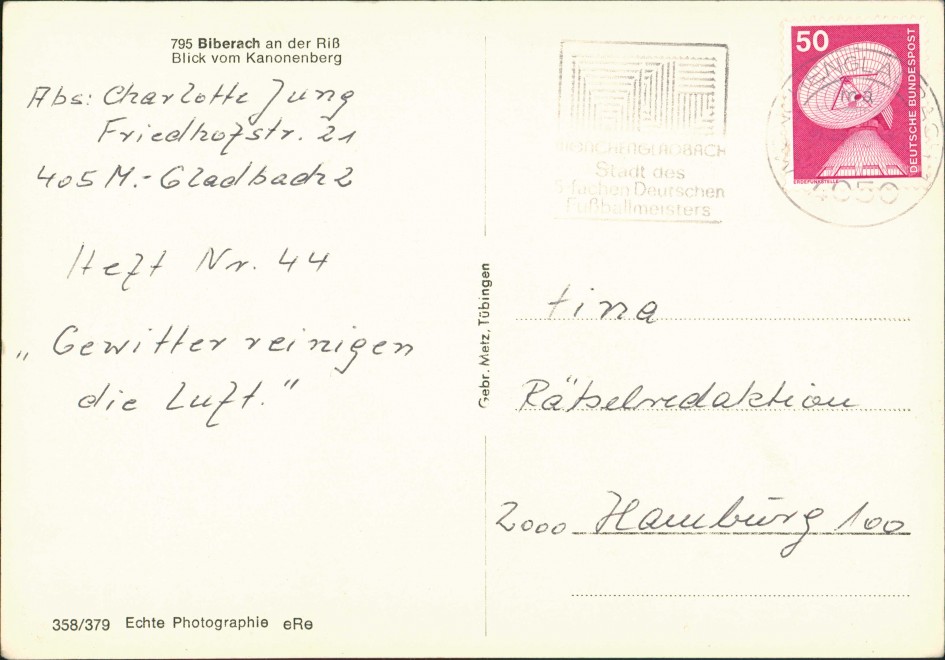 795 Biberach an der Riß
Blick vom Kanonenberg
Abs: Charlotte Jung
Friedhofstr. 21
405 M.-Gladbach 2
Heft Nr. 44
„Gewitter reinigen
die Luft."
358/379 Echte Photographie eRe
Gebr. Metz, Tübingen
MÖNCHENGLADBACH
Stadt des
fachen Deutschen
Fußballmeisters
50
DEUTSCHE BUNDESPOST
ERDEFUNKSTELLE
4050
tina
Rätselredaktion
2000 Hamburg 100